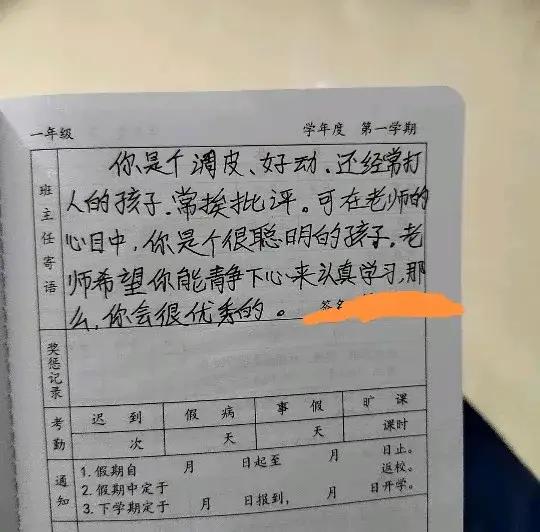 一年级 学年度 第一学期
班主任寄语
你是个调皮、好动、还经常打
人的孩子.常挨批评。可在老师的
心目中,你是个很聪明的孩子.老
师希望你能静下心来认真学习,那
么,你会很优秀的。
签名
奖惩记录
考勤
迟到 假病 事假 旷课
次 天 天 课时
通知
1. 假期自 月 日起至 月 日止。
2. 假期中定于 返校。
3. 下学期定于 月 日报到, 月 日开学。